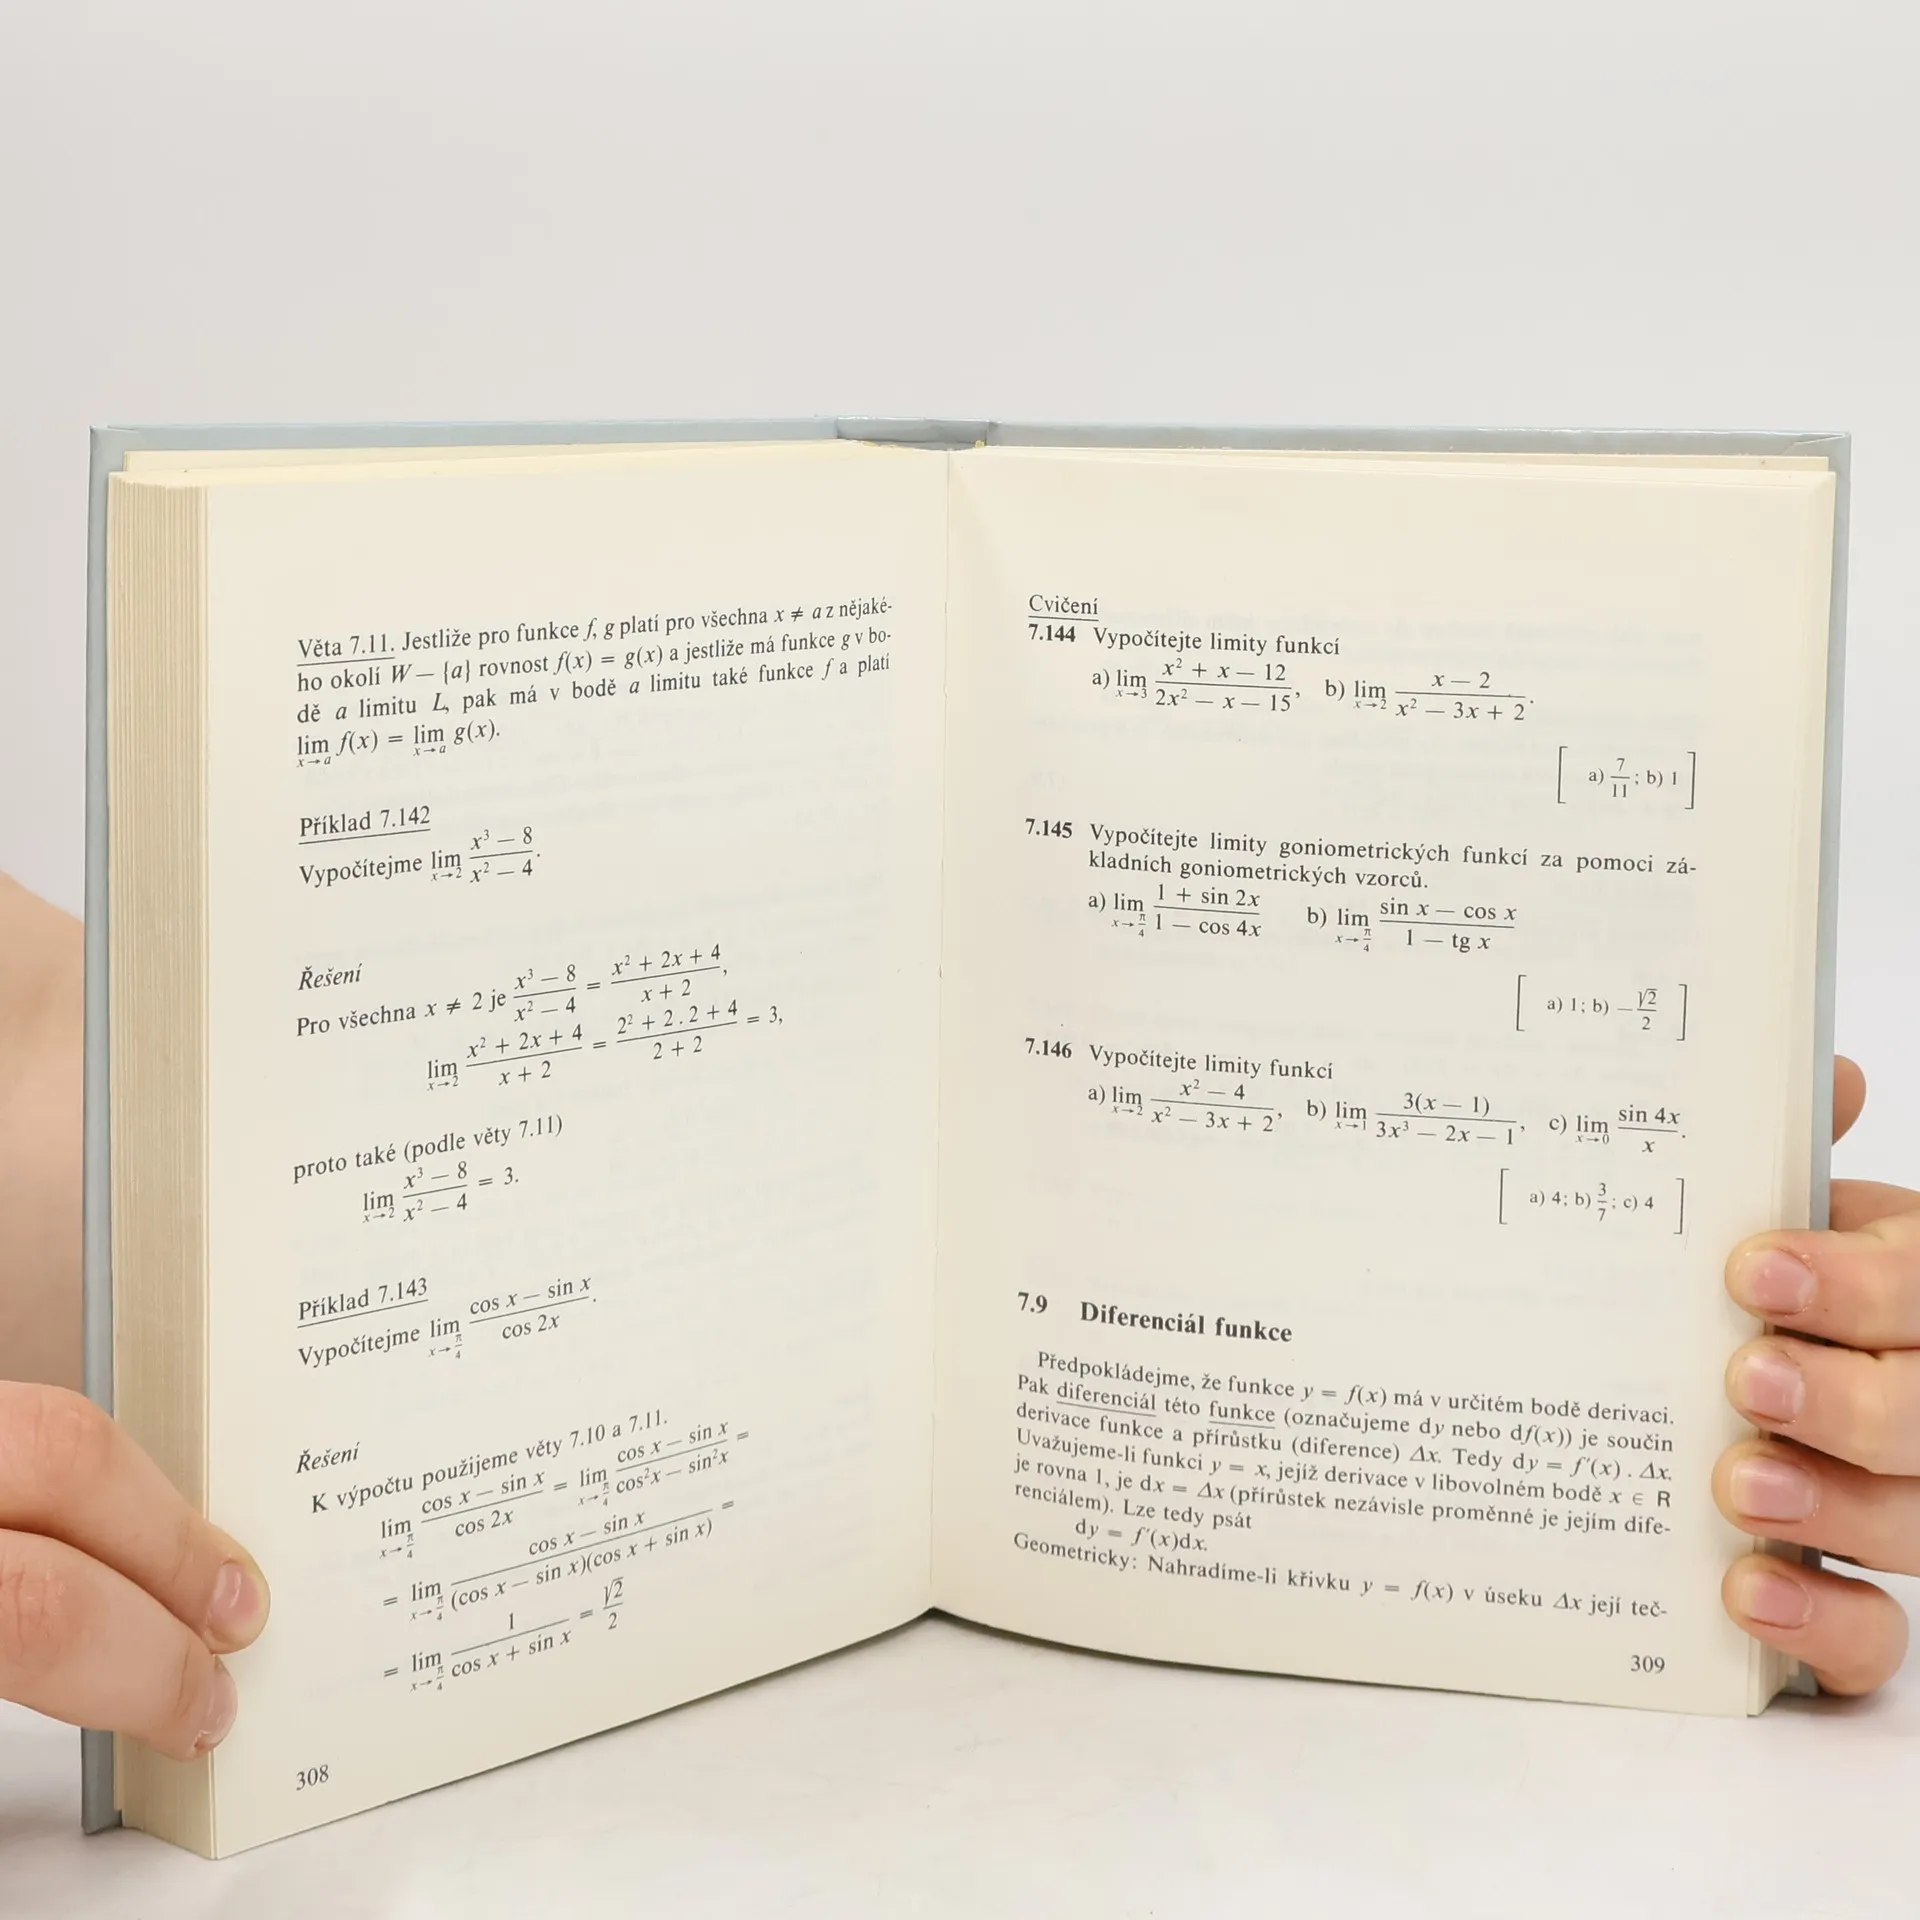 Věta 7.11. Jestliže pro funkce f, g platí pro všechna x ≠ a z nějaké-
ho okolí W — {a} rovnost f(x) = g(x) a jestliže má funkce g v bo-
dě a limitu L, pak má v bodě a limitu také funkce f a platí
lim_{x→a} f(x) = lim_{x→a} g(x).
Příklad 7.142
Vypočítejme lim_{x→2} (x³ — 8)/(x² — 4).
Řešení
Pro všechna x ≠ 2 je (x³ — 8)/(x² — 4) = (x² + 2x + 4)/(x + 2),
lim_{x→2} (x² + 2x + 4)/(x + 2) = (2² + 2 . 2 + 4)/(2 + 2) = 3,
proto také (podle věty 7.11)
lim_{x→2} (x³ — 8)/(x² — 4) = 3.
Příklad 7.143
Vypočítejme lim_{x→π/4} (cos x — sin x)/(cos 2x).
Řešení
K výpočtu použijeme věty 7.10 a 7.11.
lim_{x→π/4} (cos x — sin x)/(cos 2x) = lim_{x→π/4} (cos x — sin x)/(cos²x — sin²x) =
= lim_{x→π/4} (cos x — sin x)/((cos x — sin x)(cos x + sin x)) =
= lim_{x→π/4} 1/(cos x + sin x) = √2/2
308
Cvičení
7.144 Vypočítejte limity funkcí
a) lim_{x→3} (x² + x — 12)/(2x² — x — 15), b) lim_{x→2} (x — 2)/(x² — 3x + 2).
[ a) 7/11; b) 1 ]
7.145 Vypočítejte limity goniometrických funkcí za pomoci zá-
kladních goniometrických vzorců.
a) lim_{x→π/4} (1 + sin 2x)/(1 — cos 4x) b) lim_{x→π/4} (sin x — cos x)/(1 — tg x)
[ a) 1; b) —√2/2 ]
7.146 Vypočítejte limity funkcí
a) lim_{x→2} (x² — 4)/(x² — 3x + 2), b) lim_{x→1} 3(x — 1)/(3x³ — 2x — 1), c) lim_{x→0} (sin 4x)/x.
[ a) 4; b) 3/7; c) 4 ]
7.9 Diferenciál funkce
Předpokládejme, že funkce y = f(x) má v určitém bodě derivaci.
Pak diferenciál této funkce (označujeme dy nebo df(x)) je součin
derivace funkce a přírůstku (diference) Δx. Tedy dy = f′(x) . Δx.
Uvažujeme-li funkci y = x, jejíž derivace v libovolném bodě x ∈ R
je rovna 1, je dx = Δx (přírůstek nezávisle proměnné je jejím dife-
renciálem). Lze tedy psát
dy = f′(x)dx.
Geometricky: Nahradíme-li křivku y = f(x) v úseku Δx její teč-
309